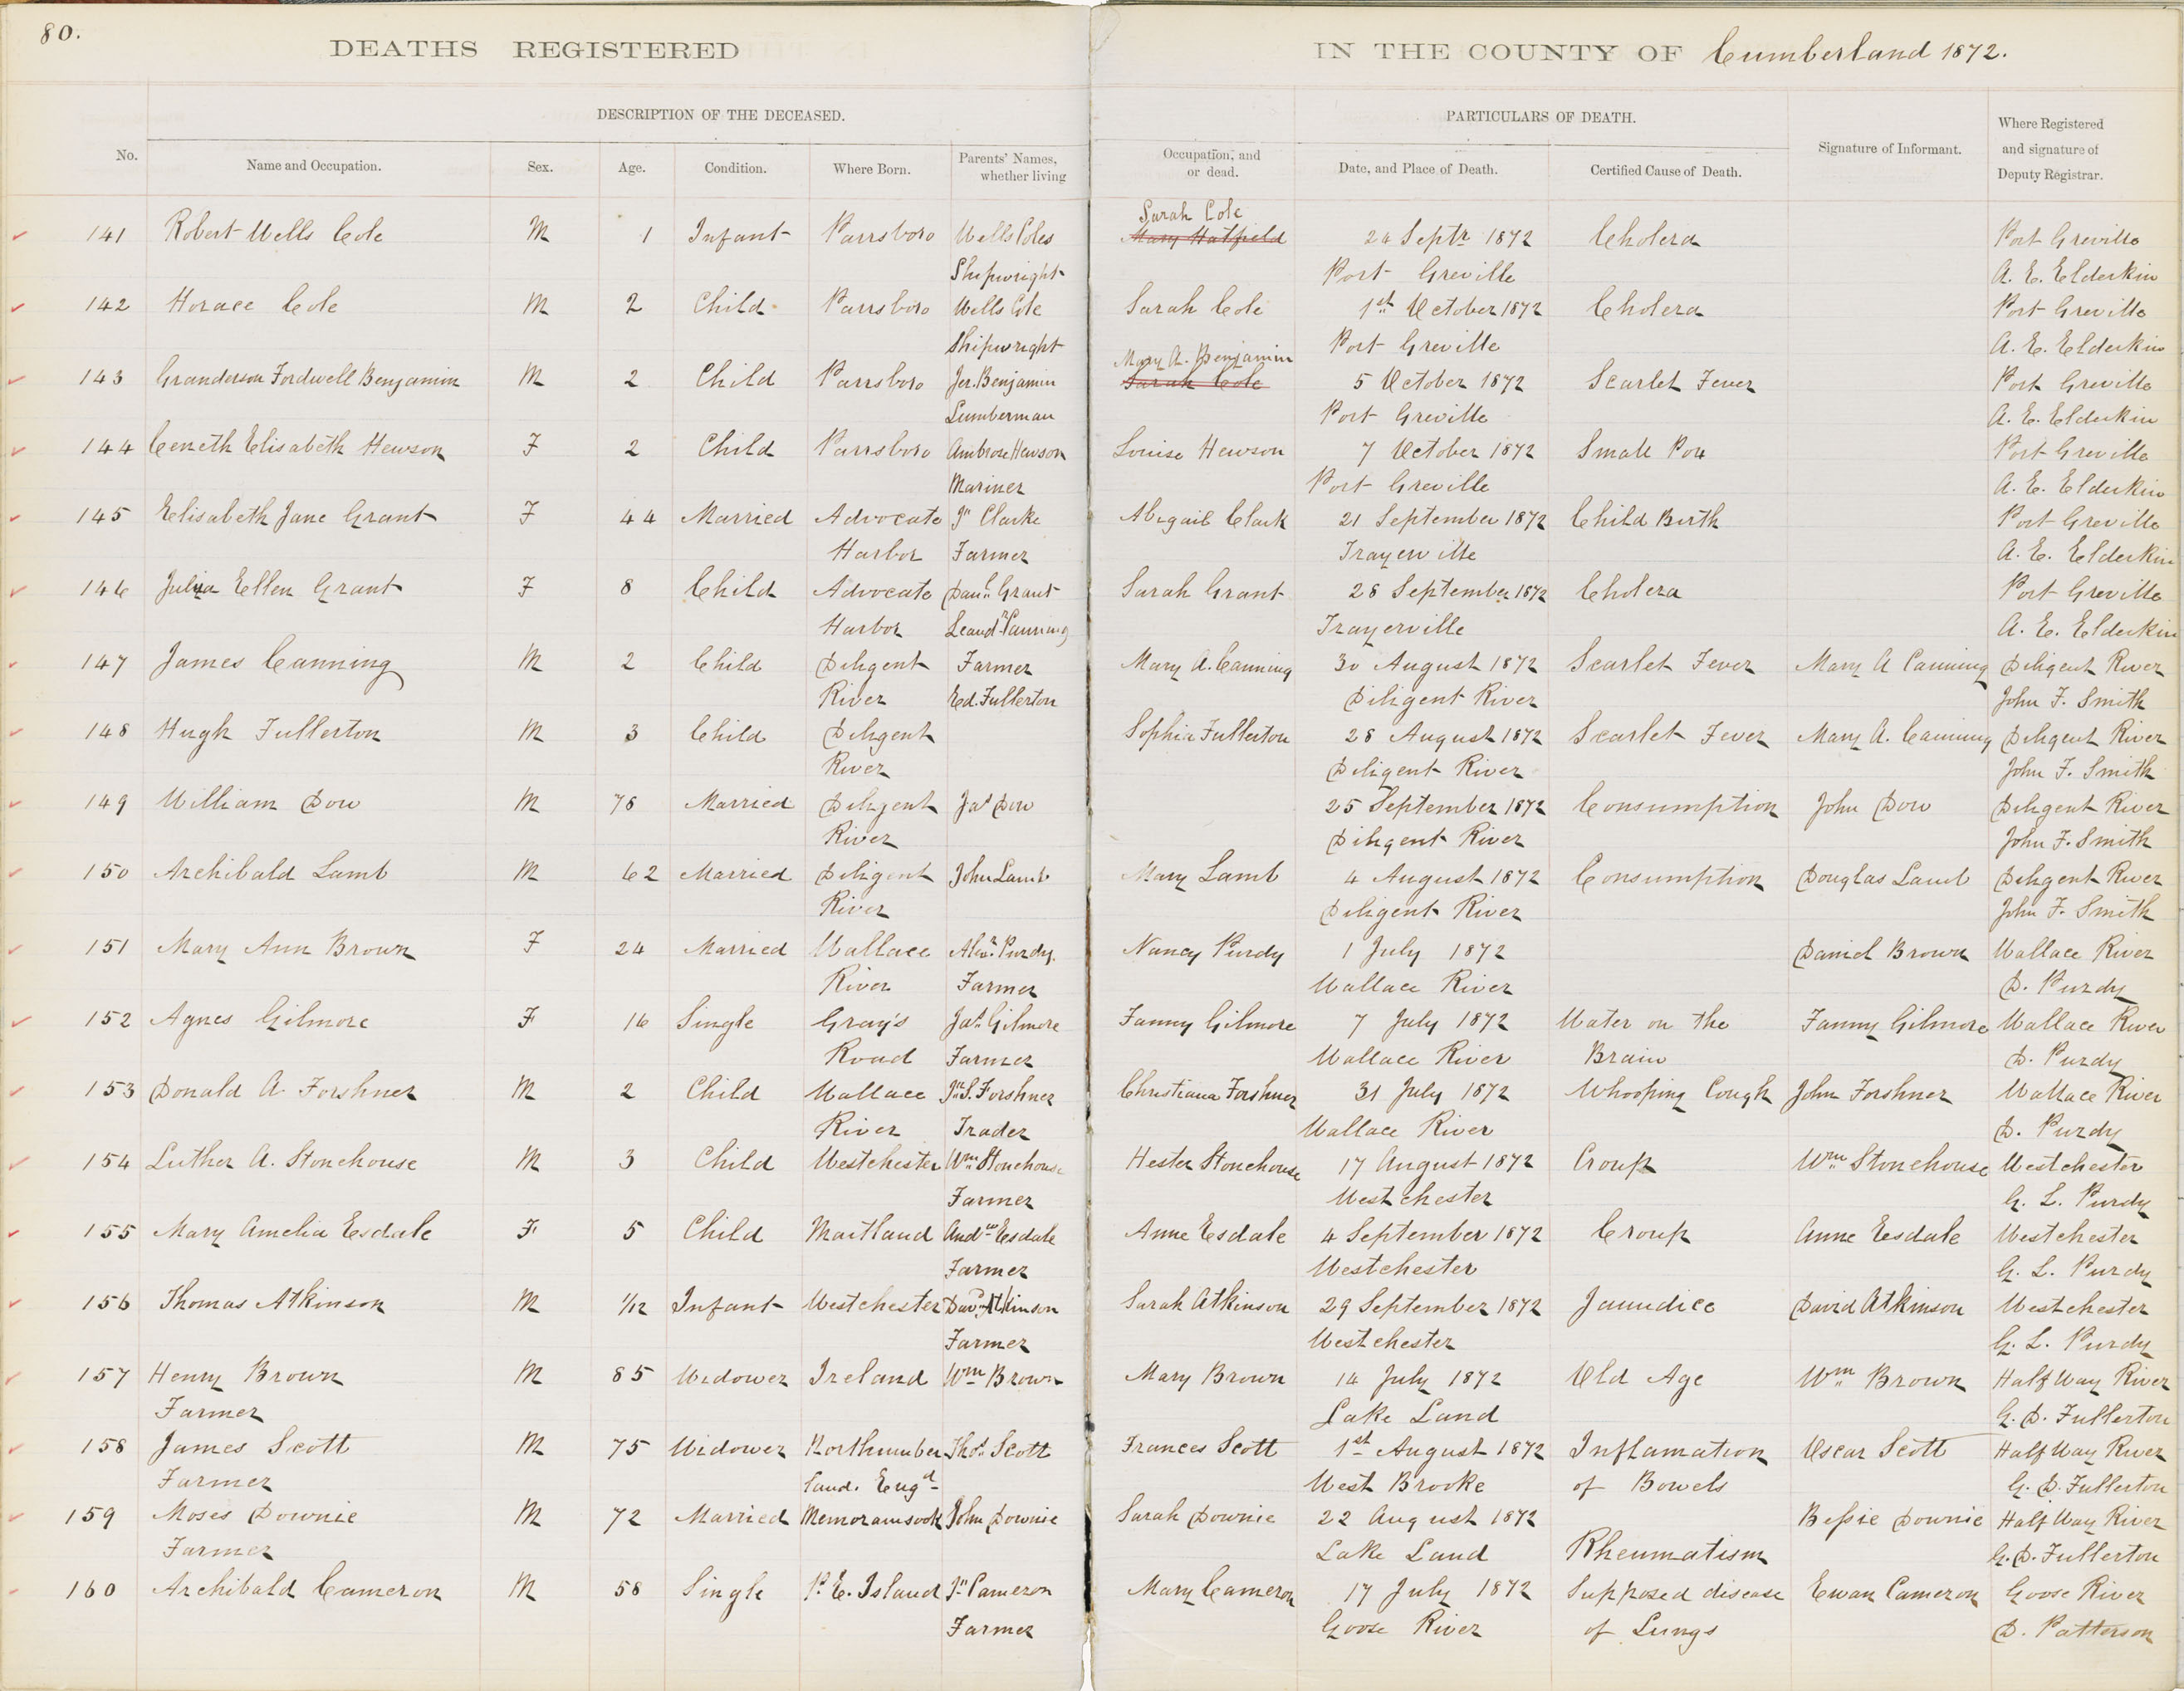 80.
DEATHS REGISTERED IN THE COUNTY OF Cumberland 1872.
DESCRIPTION OF THE DECEASED. PARTICULARS OF DEATH.
No. Name and Occupation. Sex. Age. Condition. Where Born. Parents' Names, whether living Occupation, and or dead. Date, and Place of Death. Certified Cause of Death. Signature of Informant. Where Registered and signature of Deputy Registrar.
Sarah Cole
141 Robert Wells Cole M 1 Infant Parrsboro Wells Coles Mary Hatfield 24 Septr 1872 Cholera Port Greville
Shipwright Port Greville A. E. Elderkin
142 Horace Cole M 2 Child Parrsboro Wells Cole Sarah Cole 1st October 1872 Cholera Port Greville
Shipwright Port Greville A. E. Elderkin
Mary A. Benjamin
143 Granderson Fordwell Benjamin M 2 Child Parrsboro Jer. Benjamin Sarah Cole 5 October 1872 Scarlet Fever Port Greville
Lumberman Port Greville A. E. Elderkin
144 Ceneth Elisabeth Hewson F 2 Child Parrsboro Ambrose Hewson Louise Hewson 7 October 1872 Small Pox Port Greville
Mariner Port Greville A. E. Elderkin
145 Elisabeth Jane Grant F 44 Married Advocate Jn Clarke Abigail Clark 21 September 1872 Child Birth Port Greville
Harbor Farmer Trayerville A. E. Elderkin
146 Julia Ellen Grant F 8 Child Advocate Danl Grant Sarah Grant 28 September 1872 Cholera Port Greville
Harbor Leandr Canning Trayerville A. E. Elderkin
147 James Canning M 2 Child Diligent Farmer Mary A. Canning 30 August 1872 Scarlet Fever Mary A Canning Diligent River
River Ed. Fullerton Diligent River John F. Smith
148 Hugh Fullerton M 3 Child Diligent Sophia Fullerton 28 August 1872 Scarlet Fever Mary A. Canning Diligent River
River Diligent River John F. Smith
149 William Dow M 78 Married Diligent Jas Dow 25 September 1872 Consumption John Dow Diligent River
River Diligent River John F. Smith
150 Archibald Lamb M 62 Married Diligent John Lamb Mary Lamb 4 August 1872 Consumption Douglas Lamb Diligent River
River Diligent River John F. Smith
151 Mary Ann Brown F 24 Married Wallace Alexr Purdy Nancy Purdy 1 July 1872 Daniel Brown Wallace River
River Farmer Wallace River D. Purdy
152 Agnes Gilmore F 16 Single Gray's Jas Gilmore Fanny Gilmore 7 July 1872 Water on the Fanny Gilmore Wallace River
Road Farmer Wallace River Brain D. Purdy
153 Donald A. Forshner M 2 Child Wallace Jn S. Forshner Christiana Forshner 31 July 1872 Whooping Cough John Forshner Wallace River
River Trader Wallace River D. Purdy
154 Luther A. Stonehouse M 3 Child Westchester Wm Stonehouse Hester Stonehouse 17 August 1872 Croup Wm Stonehouse Westchester
Farmer Westchester G. L. Purdy
155 Mary Amelia Esdale F 5 Child Maitland Andw Esdale Anne Esdale 4 September 1872 Croup Anne Esdale Westchester
Farmer Westchester G. L. Purdy
156 Thomas Atkinson M 1/12 Infant Westchester Davd Atkinson Sarah Atkinson 29 September 1872 Jaundice David Atkinson Westchester
Farmer Westchester G. L. Purdy
157 Henry Brown M 85 Widower Ireland Wm Brown Mary Brown 14 July 1872 Old Age Wm Brown Half Way River
Farmer Lake Land G. D. Fullerton
158 James Scott M 75 Widower Northumber Thos Scott Frances Scott 1st August 1872 Inflamation Oscar Scott Half Way River
Farmer land. Engd West Brooke of Bowels G. D. Fullerton
159 Moses Downie M 72 Married Memoramsook John Downie Sarah Downie 22 August 1872 Bessie Downie Half Way River
Farmer Lake Land Rheumatism G. D. Fullerton
160 Archibald Cameron M 58 Single P. E. Island Jn Cameron Mary Cameron 17 July 1872 Supposed disease Ewan Cameron Goose River
Farmer Goose River of Lungs D. Patterson